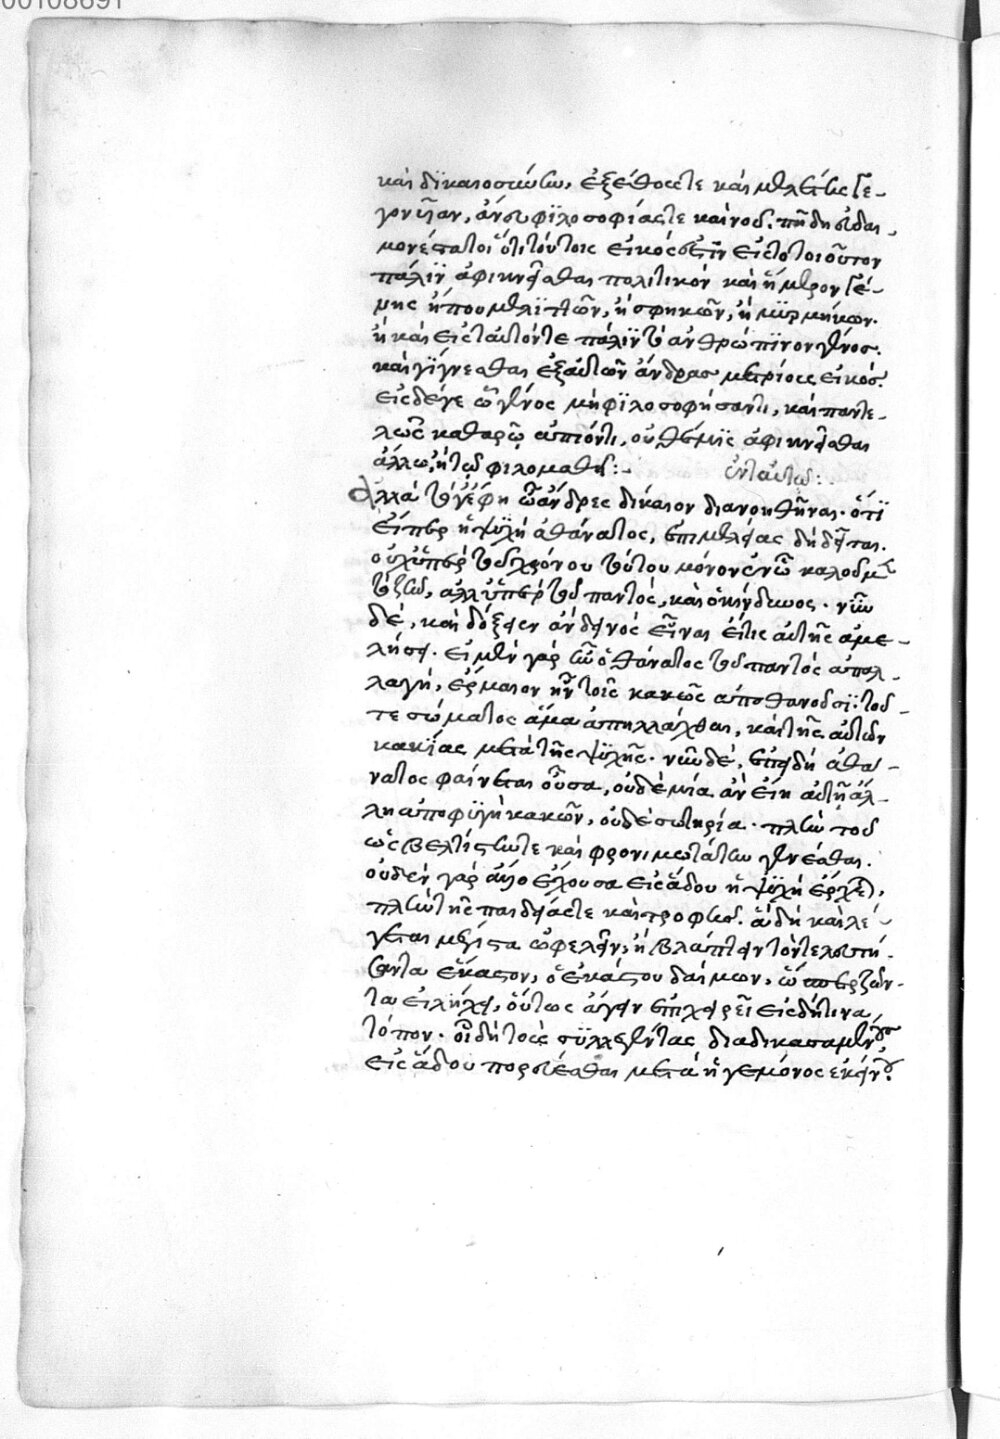 00108691
καὶ δϊκαιοσύνην, ἐξ ἔθους τε καὶ μελέτης γε-
γονυῖαν, ἄνευ φϊλοσοφίας τε καὶ νοῦ. πῆ δὴ εὐδαι-
μονέστατοι ὅτι τούτοις εἰκός ἐστϊν εἰς τοτοιοῦτον
πάλϊν ἀφικνεῖσθαι πολιτικὸν καὶ ἥμερον γέ-
μης ἤπου μελϊττῶν, ἢ σφηκῶν, ἢ μϋρμήκων.
ἢ καὶ εἰς ταυτόν τε πάλϊν τὸ ἀνθρώπϊνον γένος.
καὶ γίγνεσθαι ἐξαυτῶν ἄνδρας μετρίους εἰκός.
εἰς δέγε θεῶν γένος μὴ φϊλοσοφήσαντι, καὶ παντε-
λῶς καθαρῶ ἀπιόντι, οὐ θέμϊς ἀφικνεῖσθαι
ἄλλω, ἢ τῶ φιλομαθεῖ:- ἐν ταυτῶ:-
Ἀλλὰ τόγ' ἔφη ὦ ἄνδρες δίκαιον διανοηθῆναι. ὅτϊ
εἴπερ ἡ ψϋχὴ ἀθάνατος, ἐπιμελείας δὴ δεῖται.
οὐχ' ὑπὲρ τοῦ χρόνου τούτου μόνον ἐν ὧ καλοῦμεν
τὸ ζῆν, ἀλλ' ὑπὲρ τοῦ παντός, καὶ ὁ κίνδυνος. νῦν
δὲ, καὶ δόξειεν ἂν δεινὸς εἶναι εἴτις αὐτῆς ἀμε-
λήσει. εἰ μὲν γὰρ ἦν ὁ θάνατος τοῦ παντὸς ἀπαλ-
λαγή, ἕρμαιον ἦν τοῖς κακῶς ἀποθανοῦσϊ: τοῦ
τε σώματος ἅμα ἀπηλλάχθαι, καὶ τῆς αὐτῶν
κακϊας μετὰ τῆς ψϋχῆς. νῦν δὲ, ἐπειδὴ ἀθά-
νατος φαίνεται οὖσα, οὐδεμία ἂν εἴη αὐτῆ ἄλ-
λη ἀποφϋγὴ κακῶν, οὐδὲ σωτηρία. πλὴν τοῦ
ὡς βελτίστην τε καὶ φρονιμωτάτην γενέσθαι.
οὐδὲν γὰρ ἄλλο ἔχουσα εἰς ἅδου ἡ ψϋχὴ ἔρχεται,
πλὴν τῆς παιδείας τε καὶ τροφῆς. ἃ δὴ καὶ λέ-
γεται μέγιστα ὠφελεῖν, ἢ βλάπτειν τὸν τελευτή-
σαντα ἕκαστον, ὁ ἑκάστου δαίμων, ὥσπερ ζῶν-
τα εἰλήχει, οὕτως ἄγειν ἐπιχειρεῖ εἰς δή τινα
τόπον. οἷ δὴ τοὺς σϋλλεγέντας διαδικασαμένους
εἰς ἅδου πορεύεσθαι μετὰ ἡγεμόνος ἐκείνου.